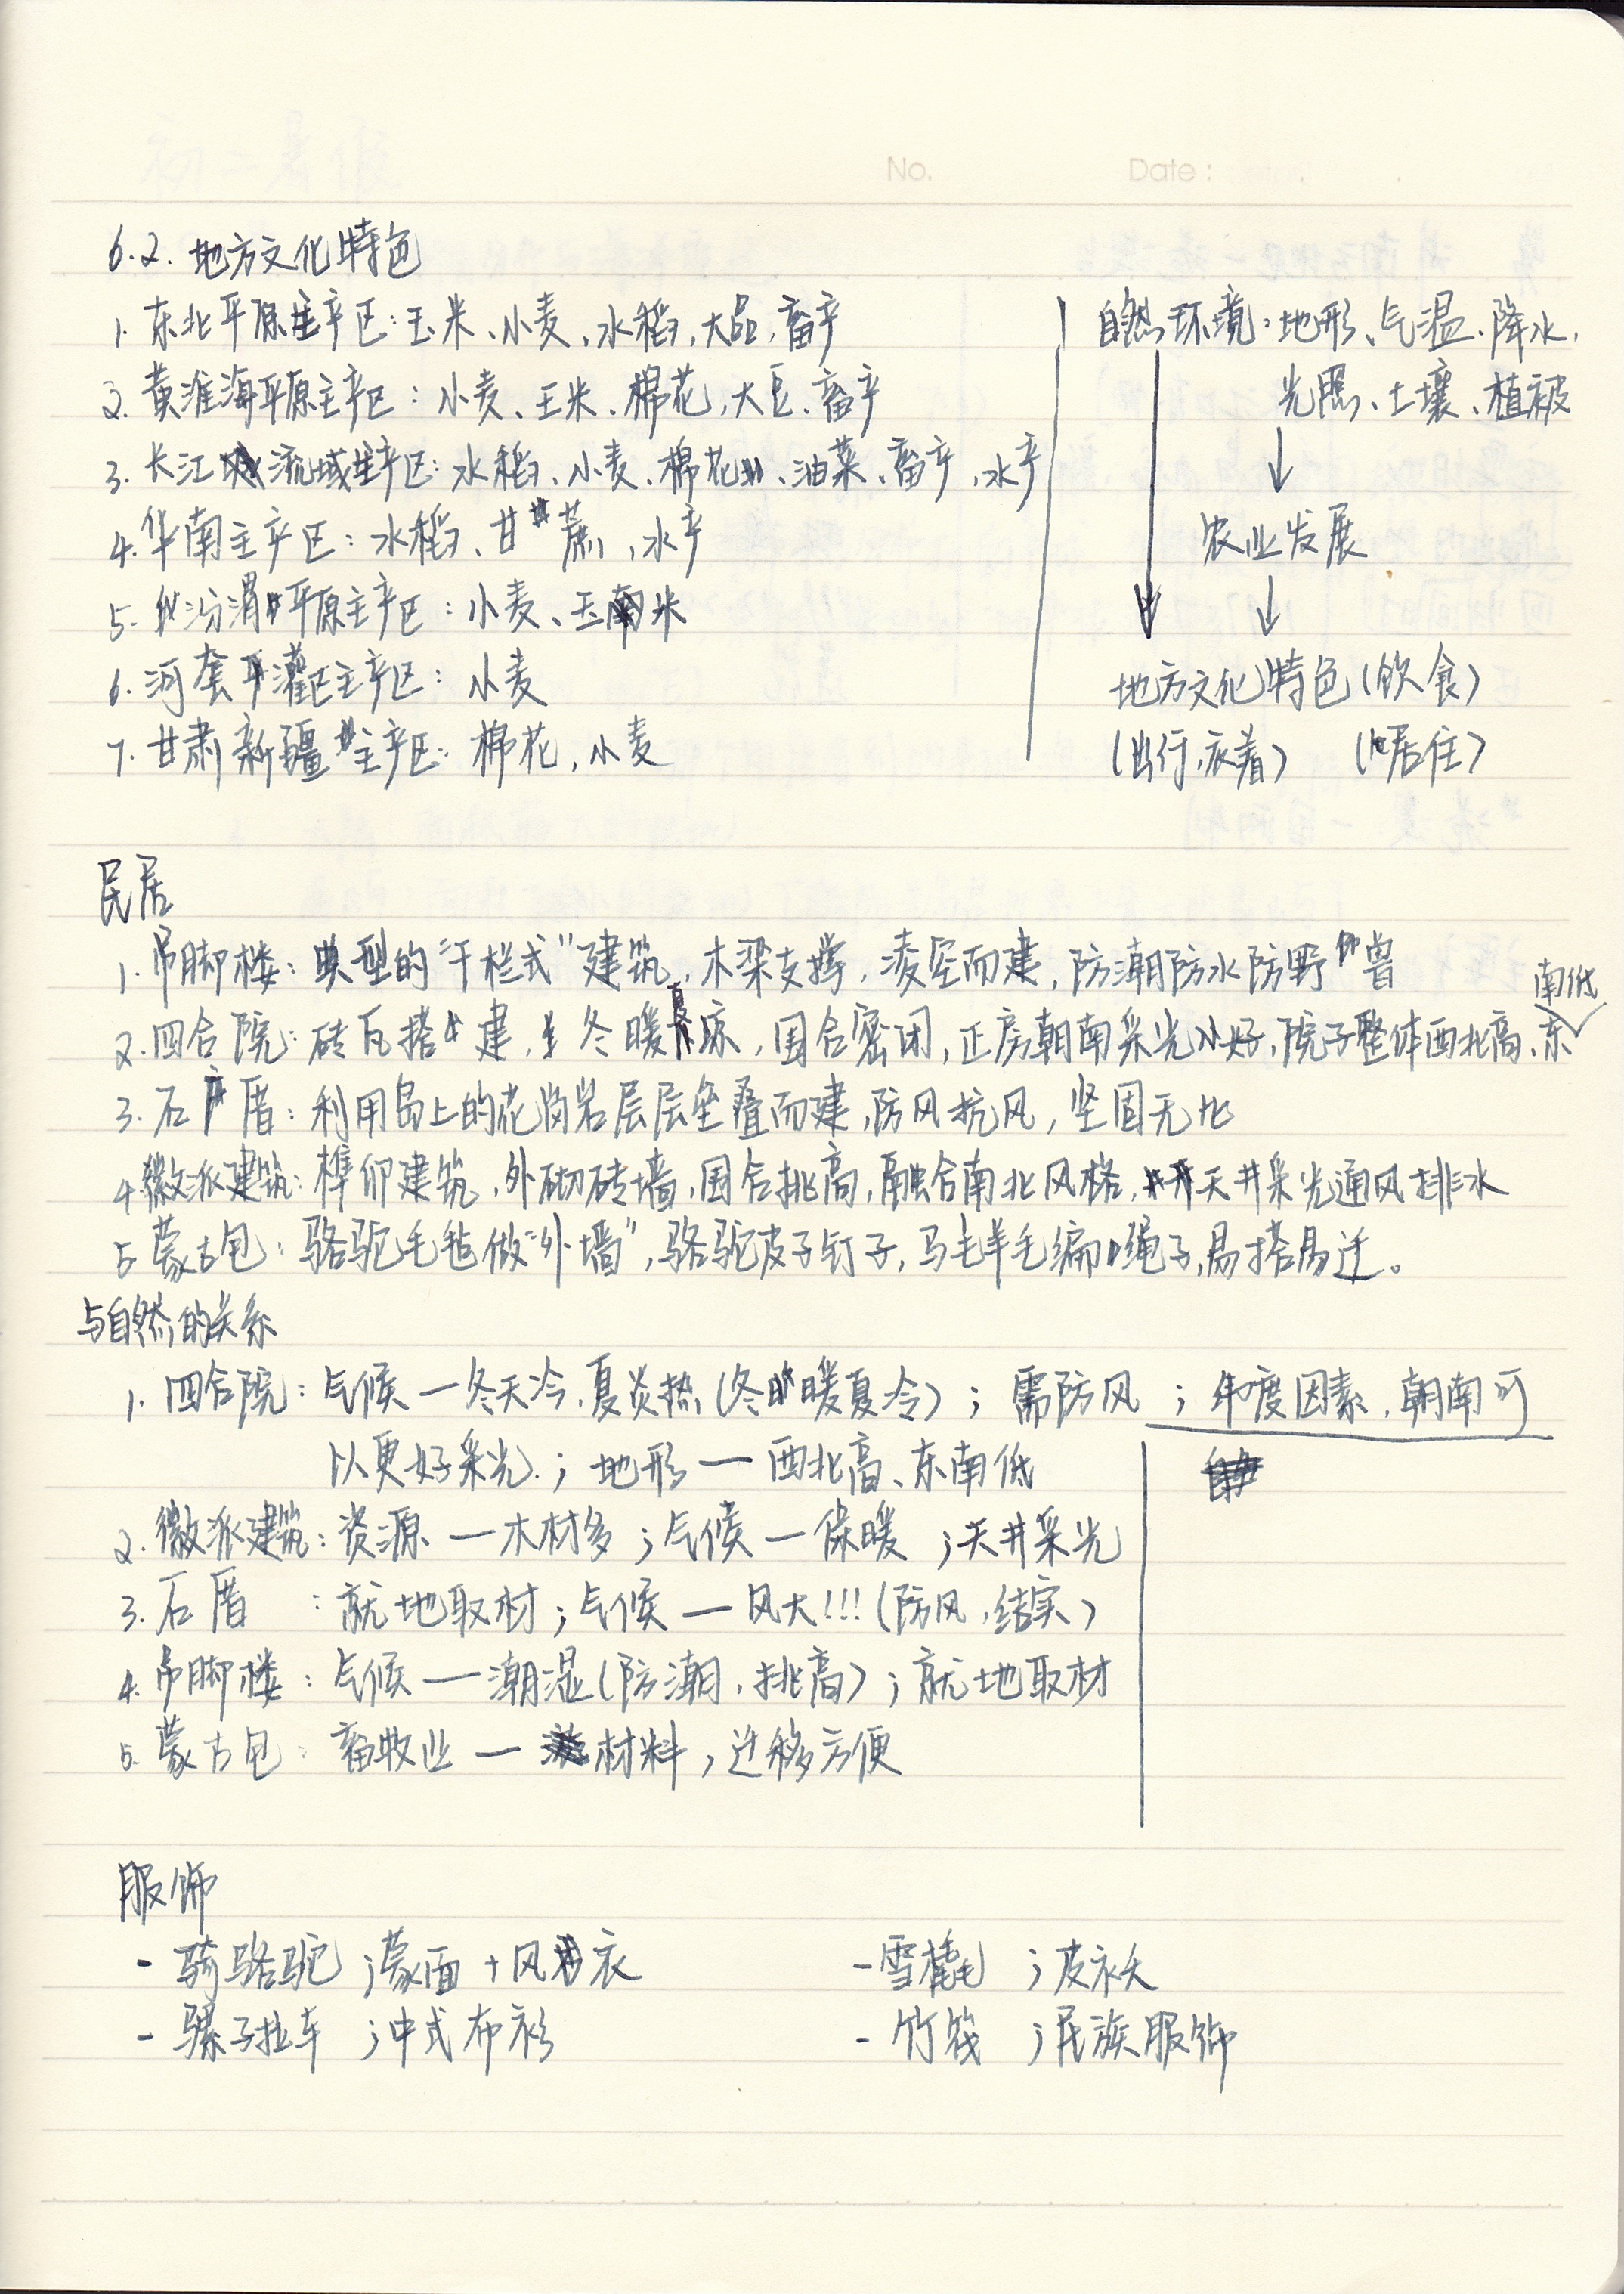 No. Date:
6.2. 地方文化特色
1. 东北平原主产区：玉米、小麦、水稻，大品，畜产
2. 黄淮海平原主产区：小麦、玉米、棉花，大豆、畜产
3. 长江流域主产区：水稻、小麦、棉花、油菜、畜产，水产
4. 华南主产区：水稻、甘蔗，水产
5. 汾渭平原主产区：小麦、玉米
6. 河套灌区主产区：小麦
7. 甘肃新疆主产区：棉花，小麦
自然环境：地形、气温、降水，
光照、土壤、植被
↓
农业发展
↓
地方文化特色（饮食）
（出行，衣着） （居住）
民居
1. 吊脚楼：典型的“干栏式”建筑，木梁支撑，凌空而建，防潮防水防野兽
2. 四合院：砖瓦搭建，冬暖夏凉，围合密闭，正房朝南采光好，院子整体西北高、东南低
3. 石厝：利用岛上的花岗岩层层垒叠而建，防风抗风，坚固无比
4. 徽派建筑：榫卯建筑，外砌砖墙，围合挑高，融合南北风格，天井采光通风排水
5 蒙古包：骆驼毛毡做“外墙”，骆驼皮子钉子，马毛羊毛编绳子，易搭易迁。
与自然的关系
1. 四合院：气候—冬天冷，夏炎热（冬暖夏冷）；需防风；纬度因素，朝南可
以更好采光；地形—西北高、东南低
2. 徽派建筑：资源—木材多；气候—保暖；天井采光
3. 石厝：就地取材；气候—风大!!!（防风，结实）
4. 吊脚楼：气候—潮湿（防潮，挑高）；就地取材
5. 蒙古包：畜牧业—材料，迁移方便
服饰
- 骑骆驼；蒙面+风衣
- 骡子拉车；中式布衫
- 雪橇；皮衣
- 竹筏；民族服饰